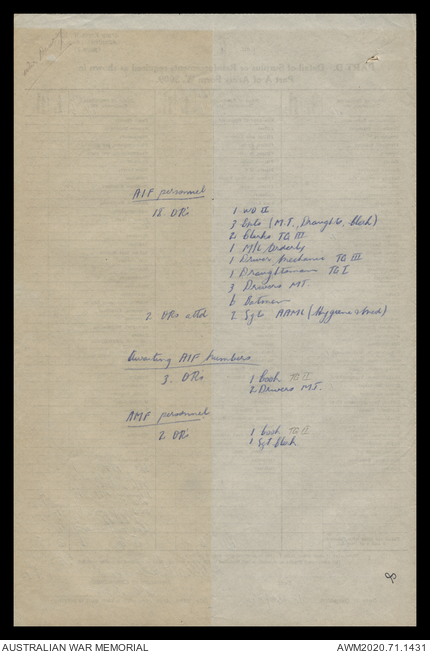 AIF personnel
18. ORs 1 WO II
3 Sgts (M.T., Draughts, Clerk)
2 Clerks TG III
1 M/C Orderly
1 Driver Mechanic TG III
1 Draughtsman TG I
3 Drivers MT.
6 Batmen
2 ORs attd 2 Sgts AAMC (Hygiene & Med)
Awaiting AIF numbers
3. ORs 1 Cook TG II
2 Drivers MT.
AMF personnel
2 ORs 1 Cook TG II
1 Sgt Clerk
8
AUSTRALIAN WAR MEMORIAL
AWM2020.71.1431